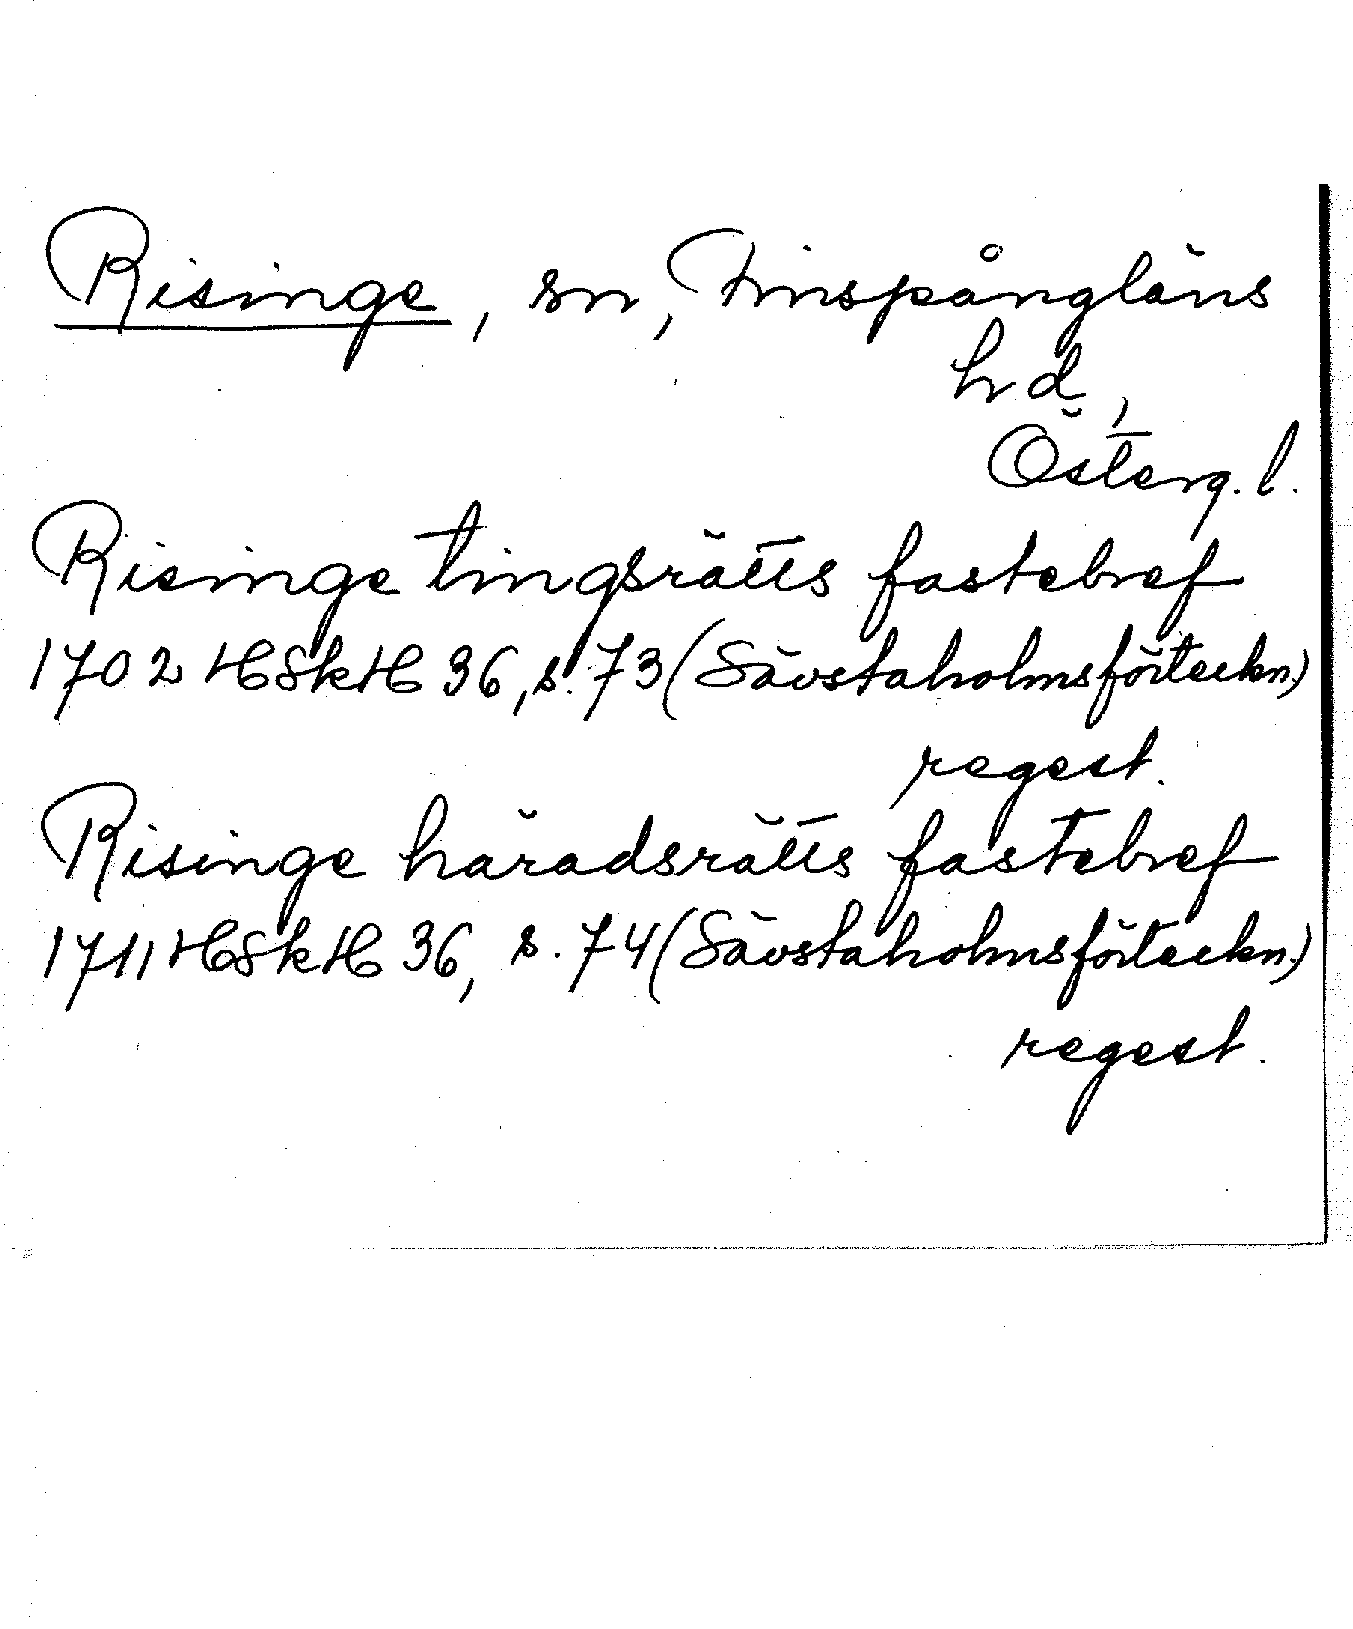 Risinge, sn, Finspångläns
hd,
Österg. l.
Risinge tingsrätts fastebref
1702 HSkH 36, s. 73 (Sävstaholmsförteckn.)
regest.
Risinge häradsrätts fastebref
1711 HSkH 36, s. 74 (Sävstaholmsförteckn.)
regest.